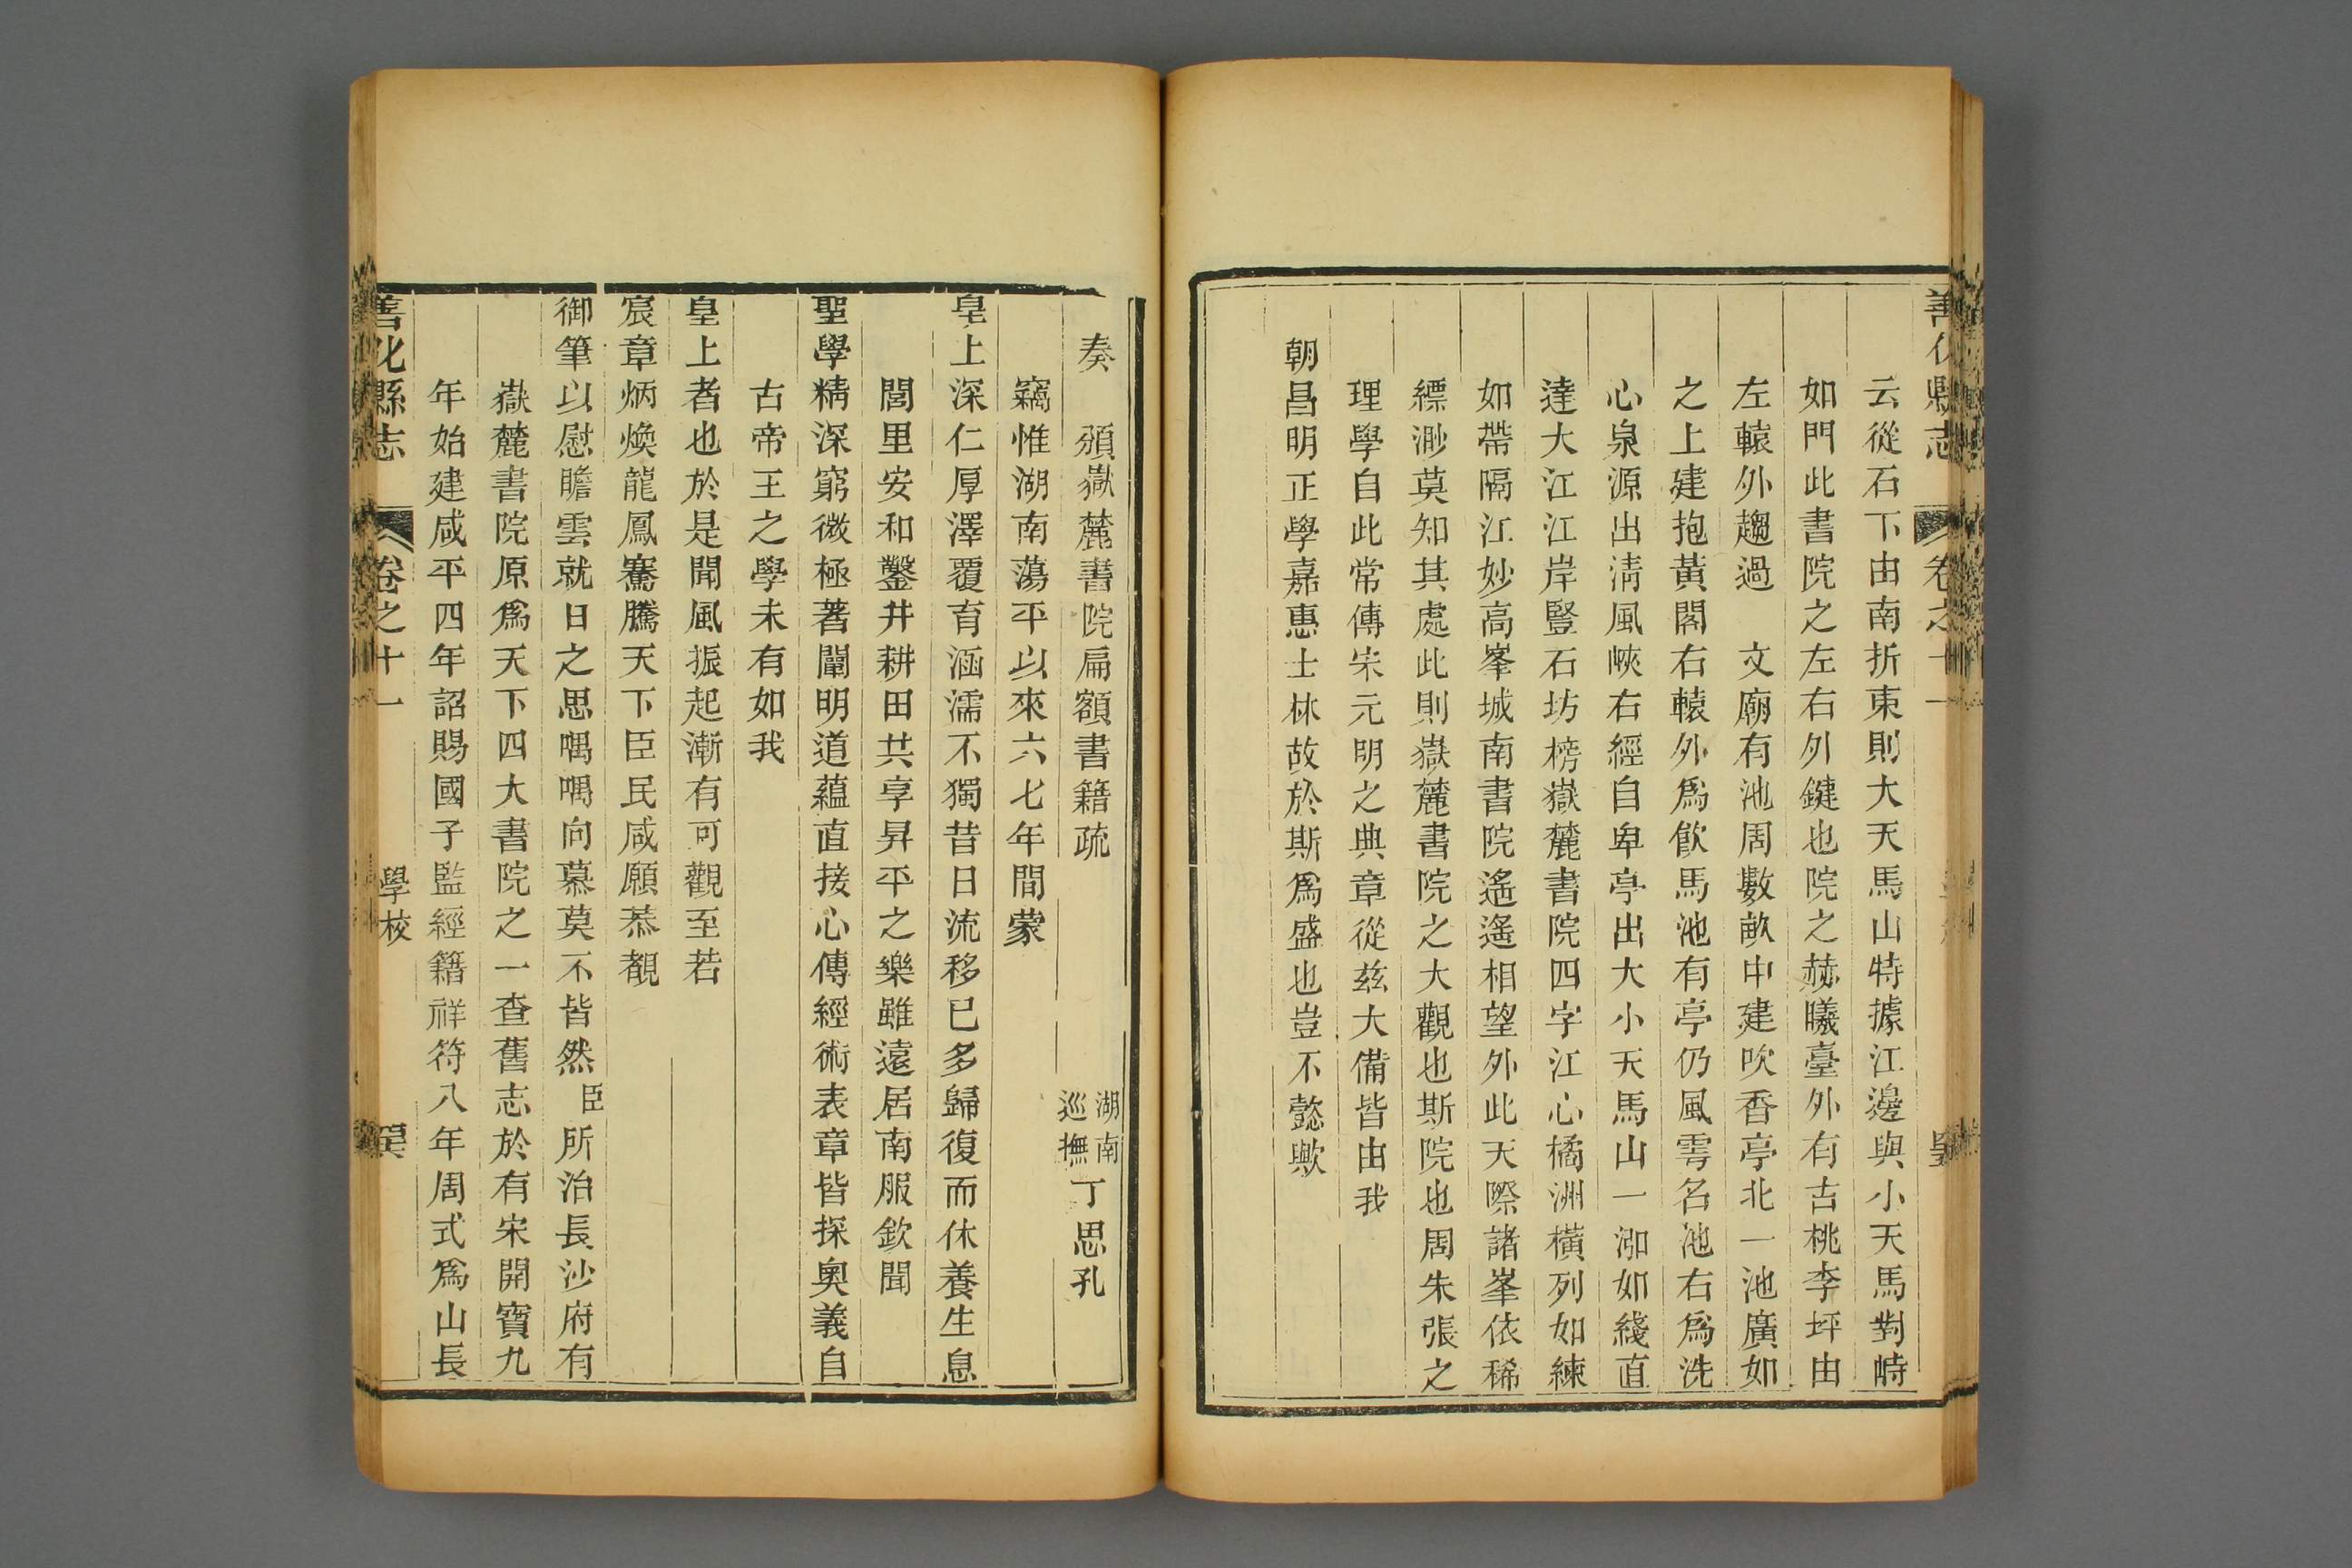 善化縣志
卷之十一
云從石下由南折東則大天馬山特據江邊與小天馬對峙
如門此書院之左右外鍵也院之赫曦臺外有古桃李坪由
左轅外趨過　文廟有池周數畝中建吹香亭北一池廣如
之上建抱黃閣右轅外爲飲馬池有亭仍風雩名池右爲洗
心泉源出清風峽右經自卑亭出大小天馬山一泖如綫直
達大江江岸豎石坊榜嶽麓書院四字江心橘洲橫列如練
如帶隔江妙高峯城南書院遙遙相望外此天際諸峯依稀
縹渺莫知其處此則嶽麓書院之大觀也斯院也周朱張之
理學自此常傳宋元明之典章從茲大備皆由我
朝昌明正學嘉惠士林故於斯爲盛也豈不懿歟
奏　頒嶽麓書院扁額書籍疏　湖南巡撫丁思孔
竊惟湖南蕩平以來六七年間蒙
皇上深仁厚澤覆育涵濡不獨昔日流移已多歸復而休養生息
閭里安和鑿井耕田共享昇平之樂雖遠居南服欽聞
聖學精深窮微極著闡明道蘊直接心傳經術表章皆探奧義自
古帝王之學未有如我
皇上者也於是聞風振起漸有可觀至若
宸章炳煥龍鳳騫騰天下臣民咸願恭覩
御筆以慰瞻雲就日之思喁喁向慕莫不皆然臣所治長沙府有
嶽麓書院原爲天下四大書院之一查舊志於有宋開寶九
年始建咸平四年詔賜國子監經籍祥符八年周式爲山長
善化縣志
卷之十一
學校